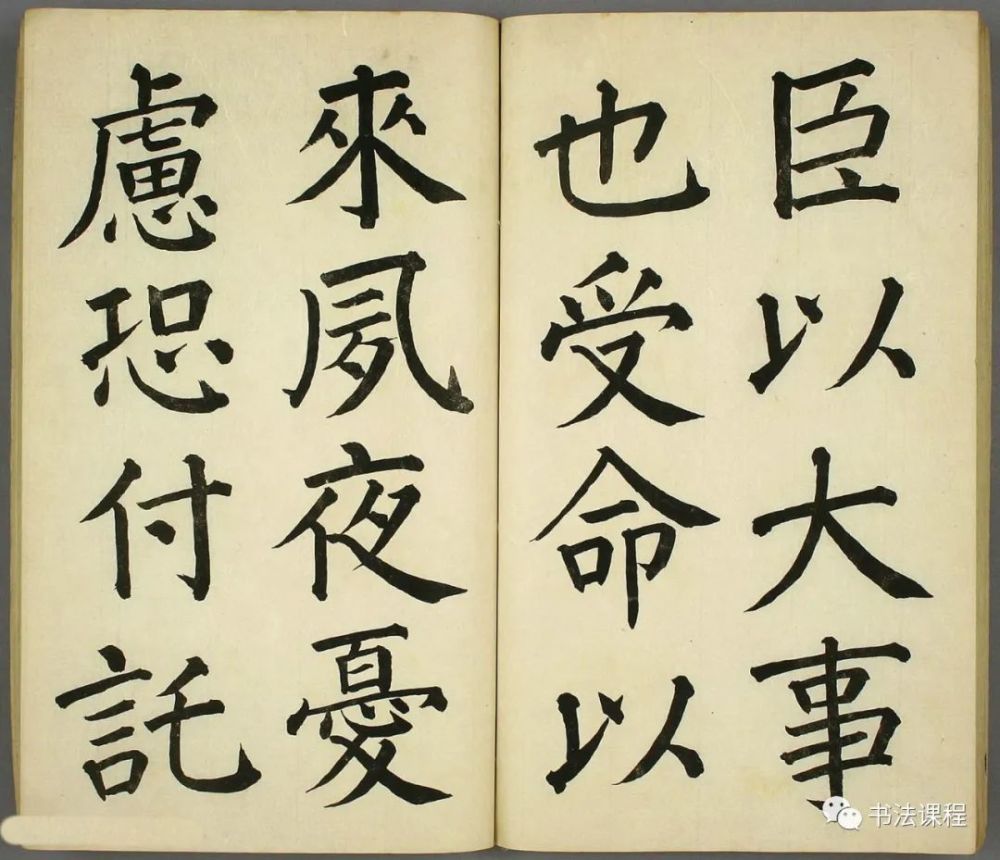 臣以大事
也受命以
來夙夜憂
慮恐付託
书法课程